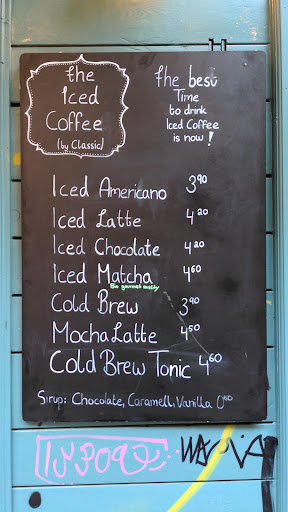 the
Iced
Coffee
(by Classic)
the best
Time
to drink
Iced Coffee
is now!
Iced Americano 3,90
Iced Latte 4,20
Iced Chocolate 4,20
Iced Matcha 4,60
Bio gourmet quality
Cold Brew 3,90
Mocha Latte 4,50
Cold Brew Tonic 4,60
Sirup: Chocolate, Caramell, Vanilla 0,40